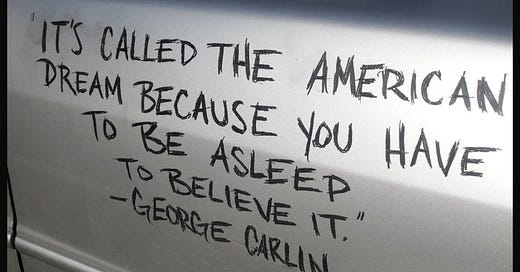 "IT'S CALLED THE AMERICAN
DREAM BECAUSE YOU HAVE
TO BE ASLEEP
TO BELIEVE IT."
-GEORGE CARLIN